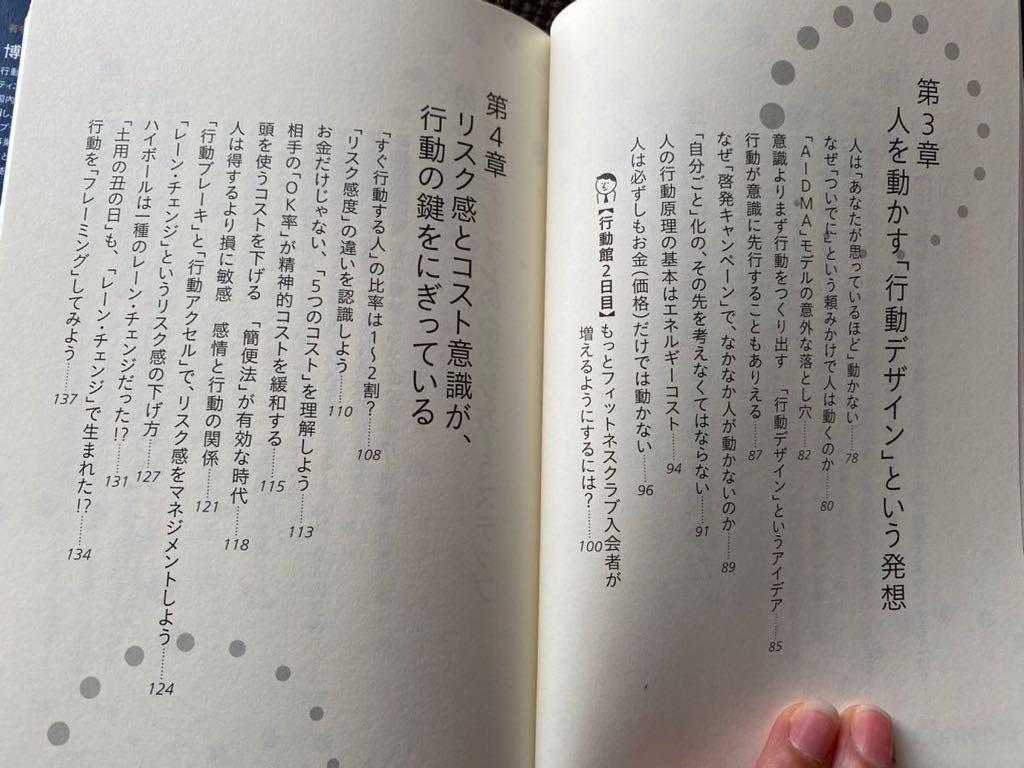 第3章
人を動かす「行動デザイン」という発想
人は「あなたが思っているほど」動かない……78
なぜ「ついでに」という頼みかけで人は動くのか……80
「AIDMA」モデルの意外な落とし穴……82
意識よりまず行動をつくり出す 「行動デザイン」というアイデア……85
行動が意識に先行することもありえる……87
なぜ「啓発キャンペーン」で、なかなか人が動かないのか……89
「自分ごと」化の、その先を考えなくてはならない……91
人の行動原理の基本はエネルギーコスト……94
人は必ずしもお金(価格)だけでは動かない……96
【行動館2日目】もっとフィットネスクラブ入会者が
増えるようにするには?……100
第4章
リスク感とコスト意識が、
行動の鍵をにぎっている
「すぐ行動する人」の比率は1〜2割?……108
「リスク感度」の違いを認識しよう……110
お金だけじゃない、「5つのコスト」を理解しよう……113
相手の「OK率」が精神的コストを緩和する……115
頭を使うコストを下げる 「簡便法」が有効な時代……118
人は得するより損に敏感 感情と行動の関係……121
「行動ブレーキ」と「行動アクセル」で、リスク感をマネジメントしよう……124
「レーン・チェンジ」というリスク感の下げ方……127
ハイボールは一種のレーン・チェンジだった!?……131
「土用の丑の日」も、「レーン・チェンジ」で生まれた!?……134
行動を「フレーミング」してみよう……137
博
行動
ティン
国内